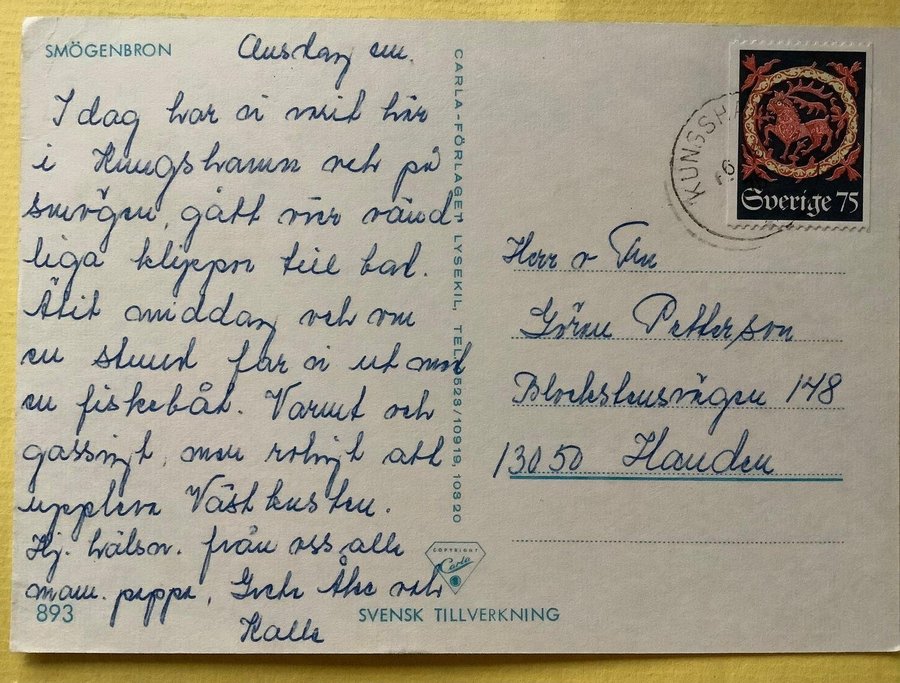 SMÖGENBRON
Onsdag em.
I dag har vi varit här
i Kungshamn och på
smögen, gått över
liga klippor till bad.
Ätit middag och om
en stund far vi ut med
en fiskebåt. Varmt och
gassigt, men roligt att
uppleva Västkusten.
Hj. hälsn. från oss alla
mam. pappa, Greta Åke och
Kalle
893
SVENSK TILLVERKNING
CARLA-FÖRLAGET LYSEKIL, TEL. 0523/10919, 10320
COPYRIGHT
Carla
KUNGSHA
6
Sverige 75
Herr o Fru
Göran Petterson
Blockstensvägen 178
13050 Handen